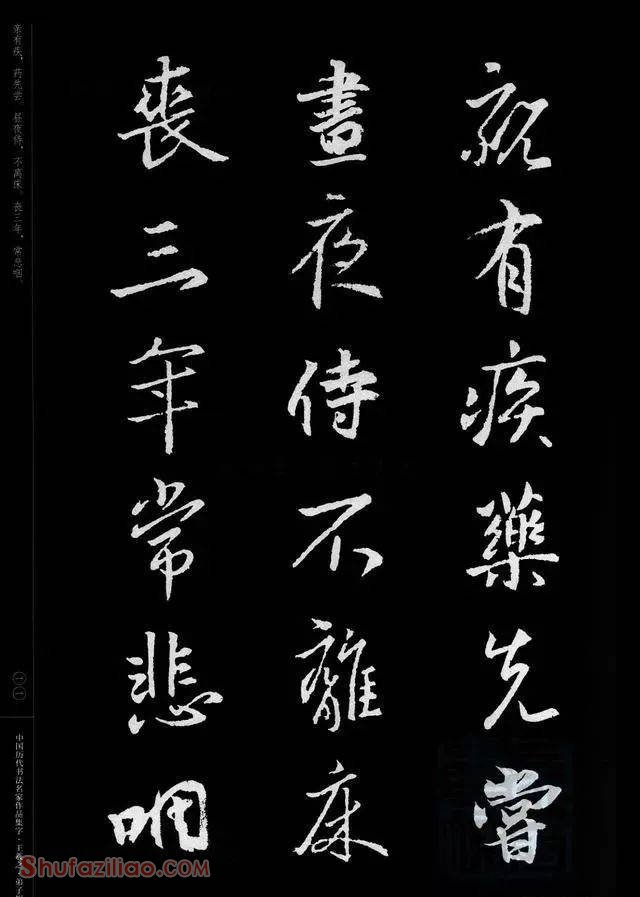 親有疾藥先嘗
晝夜侍不離床
喪三年常悲咽
亲有疾，药先尝。昼夜侍，不离床。丧三年，常悲咽。
一一
中国历代书法名家作品集字·王羲之 弟子规
Shufaziliao.com